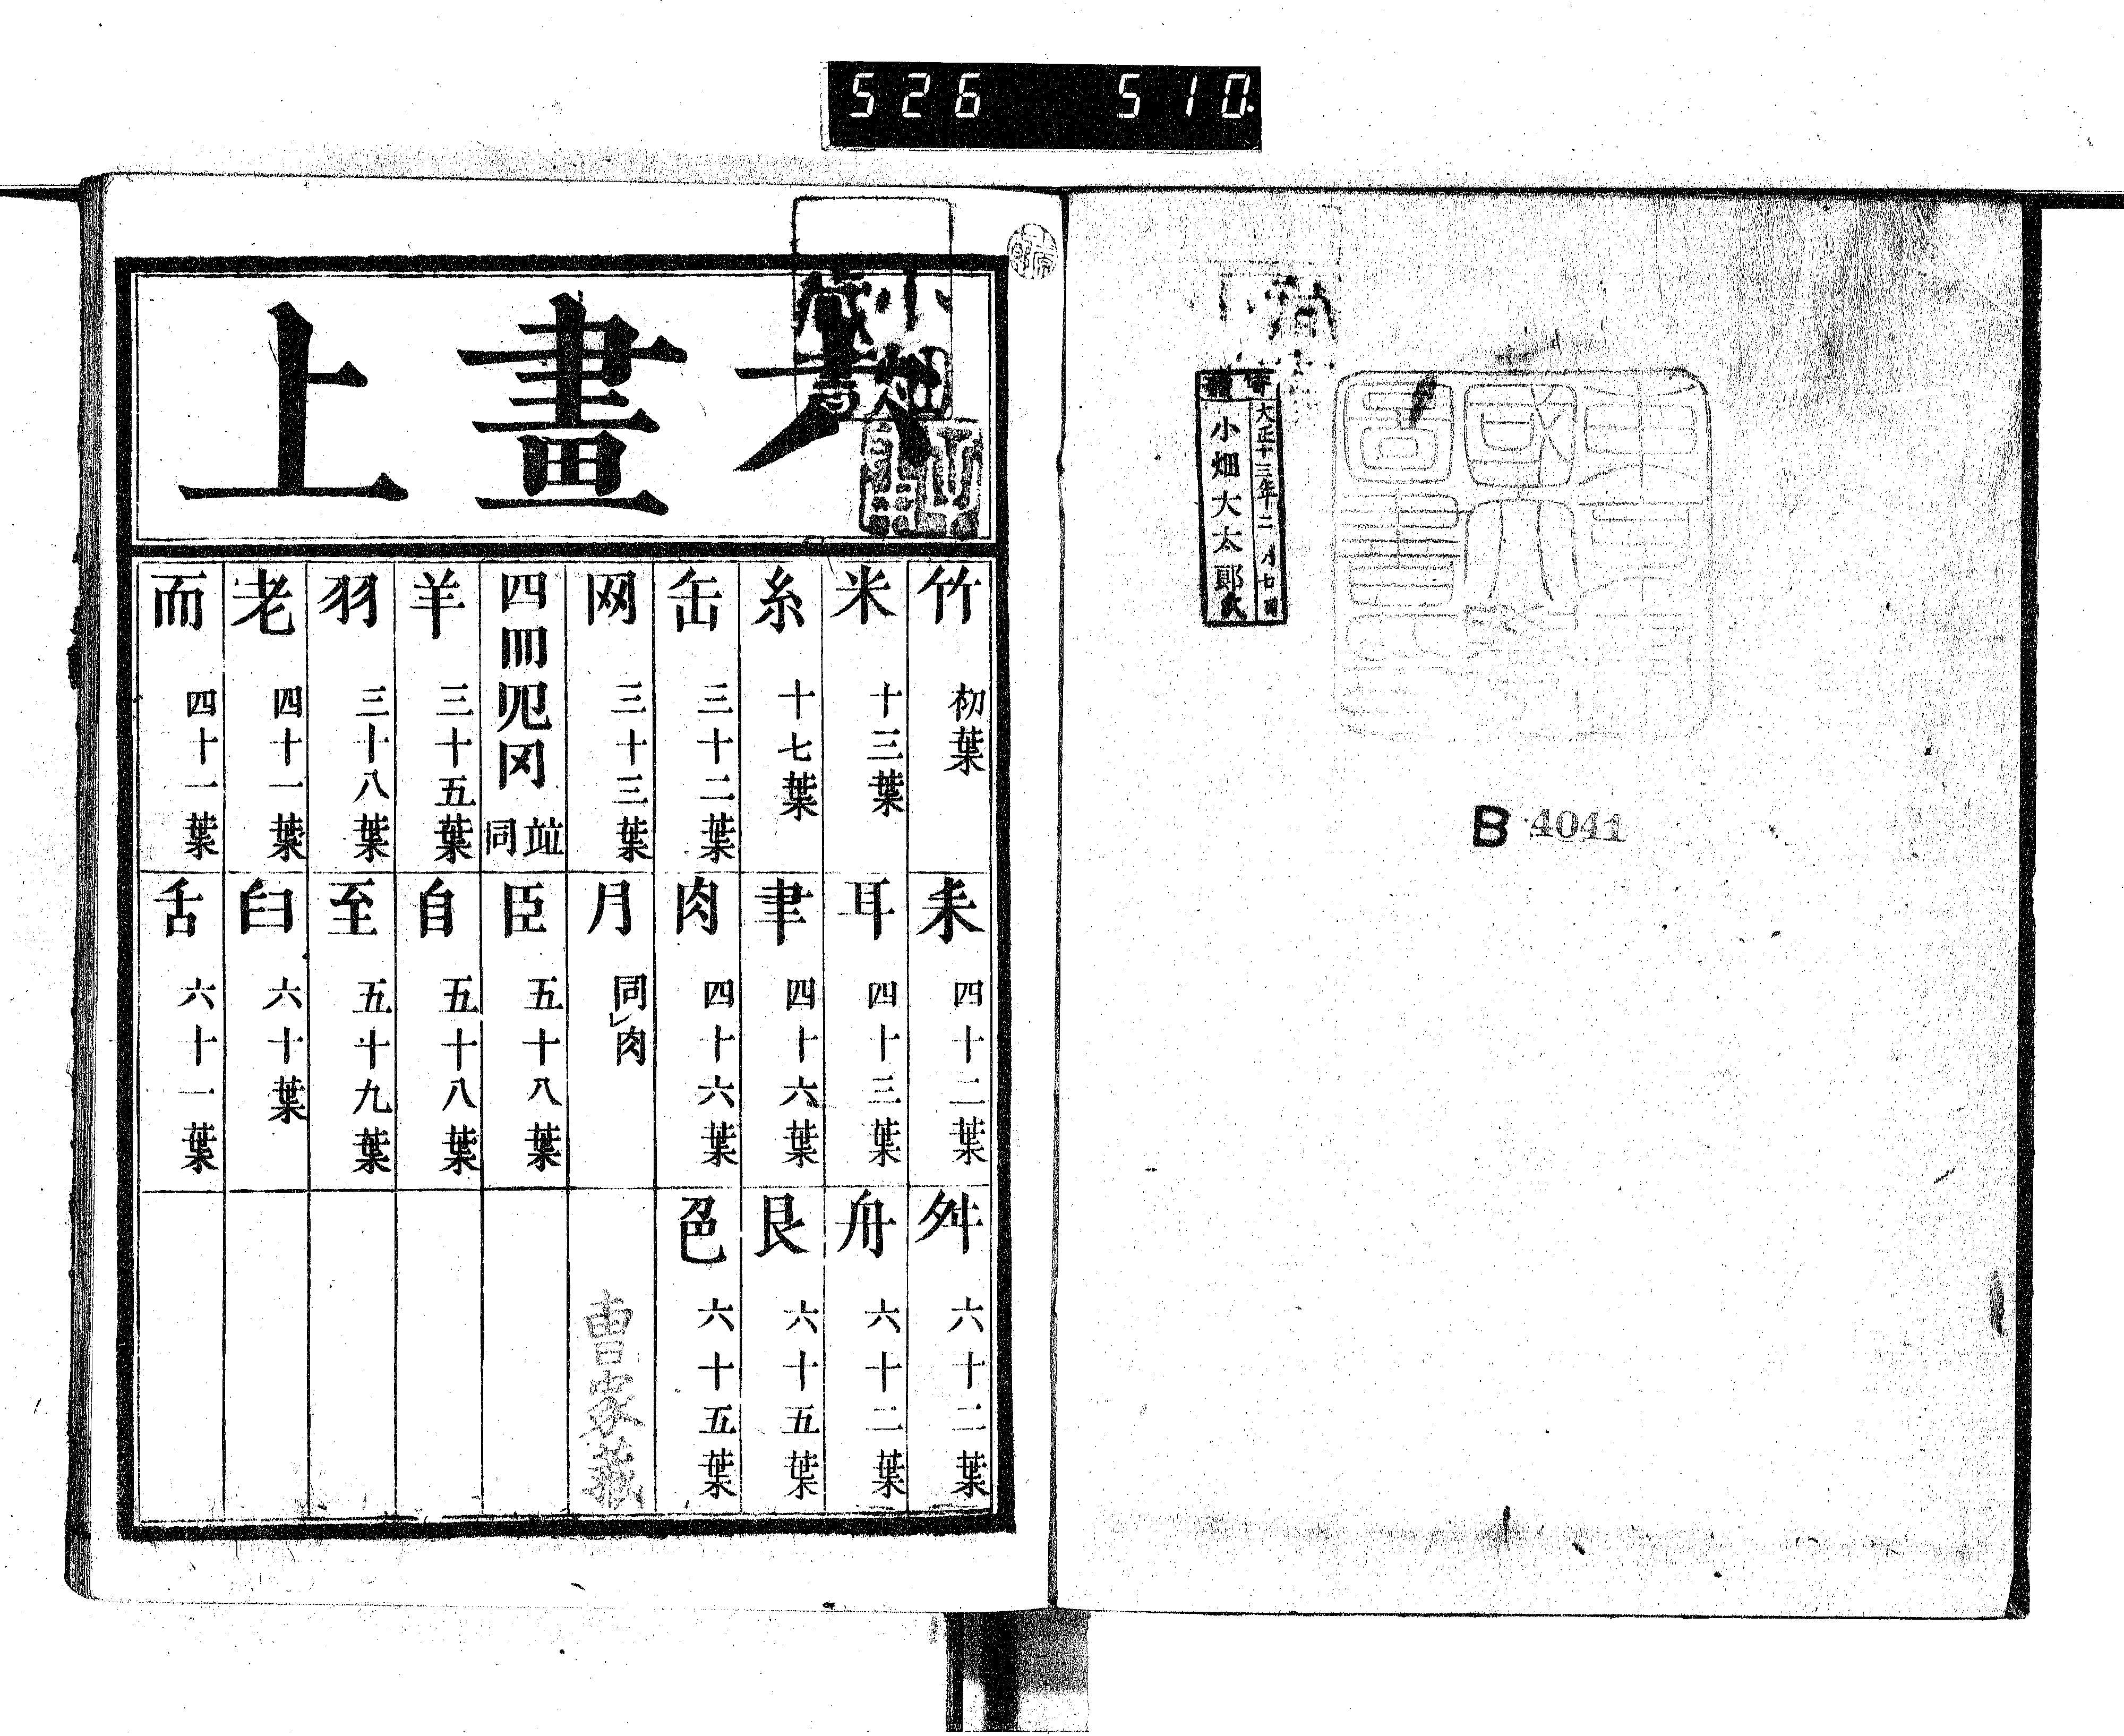 526 510.
寄贈
大正十三年二月七日
小畑大太郎氏
東京帝國大學圖書印
B 4041
六畫上
竹 初葉
米 十三葉
糸 十七葉
缶 三十二葉
网 三十三葉
四罒𦉰冈 竝同
羊 三十五葉
羽 三十八葉
老 四十一葉
而 四十一葉
耒 四十二葉
耳 四十三葉
聿 四十六葉
肉 四十六葉
月 同肉
臣 五十八葉
自 五十八葉
至 五十九葉
臼 六十葉
舌 六十一葉
舛 六十二葉
舟 六十二葉
艮 六十五葉
色 六十五葉
曹家藏